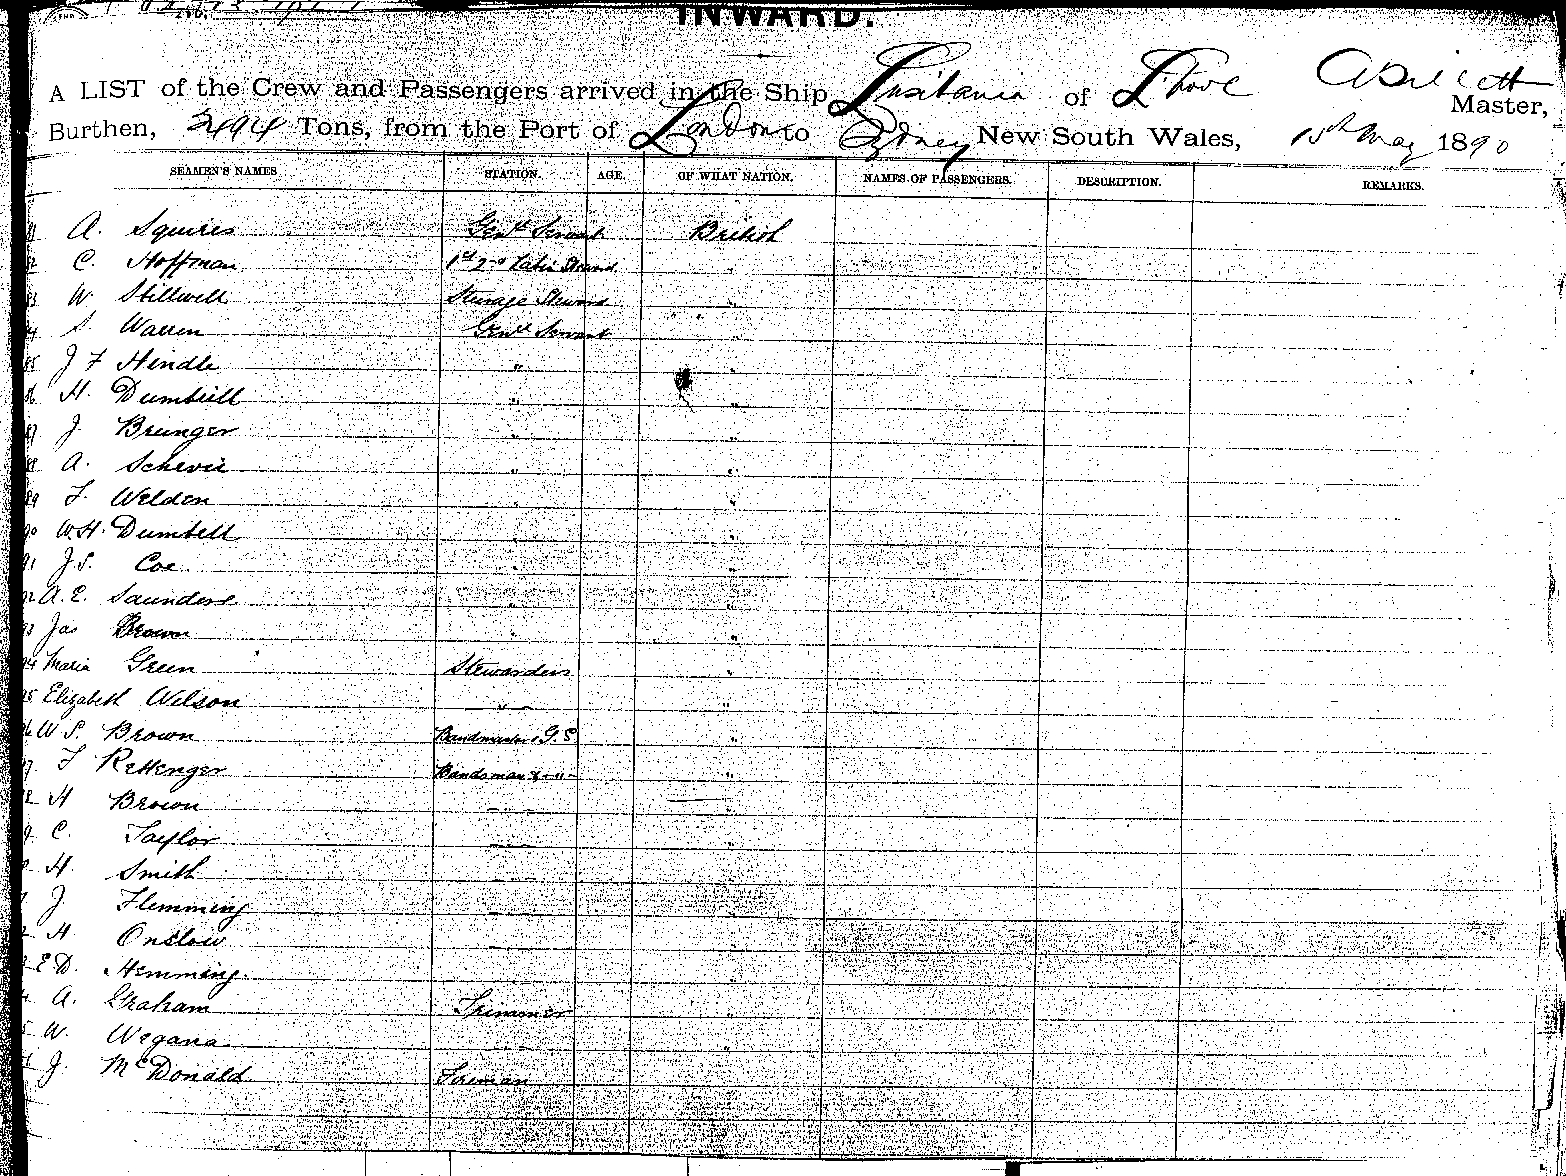 INWARD.
A LIST of the Crew and Passengers arrived in the Ship Lusitania of L'pool
Master,
Burthen, 2494 Tons, from the Port of London to Sydney New South Wales, 15th May 1890
SEAMEN'S NAMES STATION. AGE. OF WHAT NATION. NAMES OF PASSENGERS. DESCRIPTION. REMARKS.
A. Squires Genl. Servant British
C. Hoffman 1st 2nd Table Steward "
W. Stillwell Steerage Steward "
S. Warren Genl. Servant "
J F Hindle " "
H. Dumbrill " "
J. Brunger " "
A. " "
89 F. Weldon " "
90 W.H. Dumbell " "
91 J.S. Coe " "
92 A.E. Saunders " "
93 Jas Brown " "
94 Maria Green Stewardess "
95 Elizabeth Wilson " "
96 W S. Brown Bandmaster & G.S. "
F Bandsman & -"- "
H Brown
C. Taylor
H. Smith
J. Flemming
H Onslow
E D. Hemming
A. Graham Trimmer "
W. "
J. McDonald Fireman